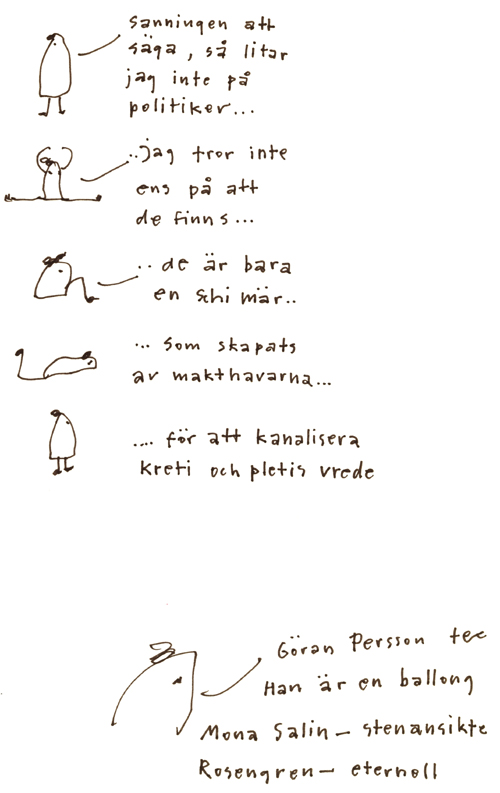 sanningen att
säga, så litar
jag inte på
politiker...
..jag tror inte
ens på att
de finns...
.. de är bara
en schimär..
... som skapats
av makthavarna...
.... för att kanalisera
kreti och pletis vrede
Göran Persson
Han är en ballong
Mona Salin - stenansikte
Rosengren - eternell